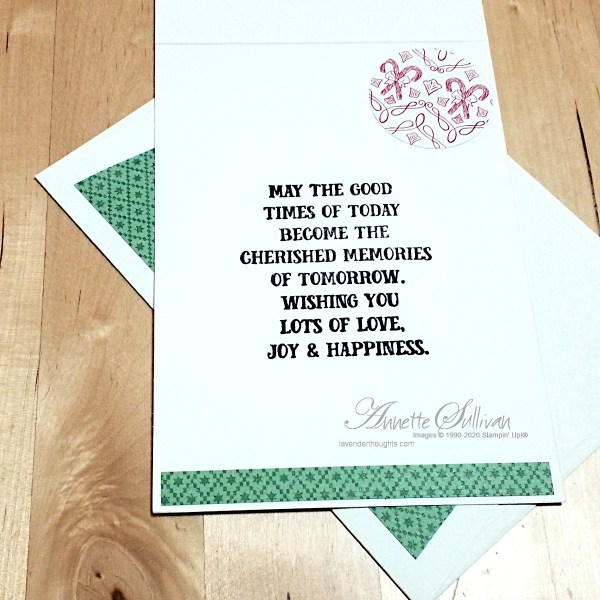 MAY THE GOOD
TIMES OF TODAY
BECOME THE
CHERISHED MEMORIES
OF TOMORROW.
WISHING YOU
LOTS OF LOVE,
JOY & HAPPINESS.
Annette Sullivan
Images © 1990-2020 Stampin' Up!®
lavenderthoughts.com